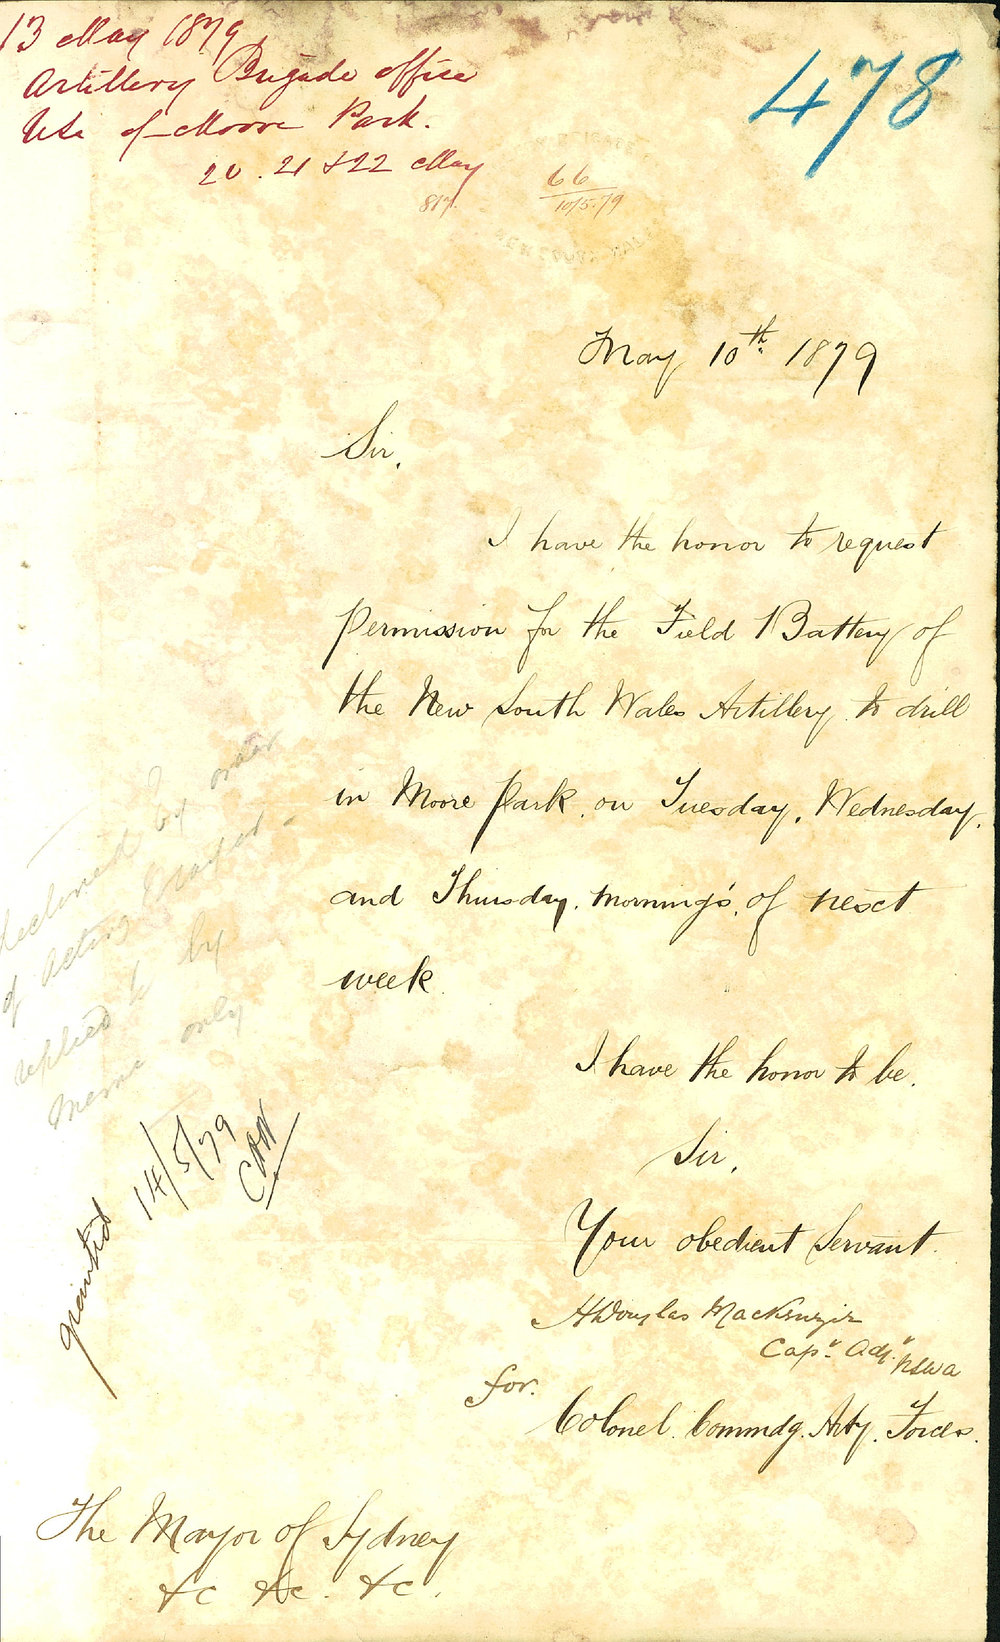 13 May 1879
Artillery Brigade office
Use of Moore Park.
20. 21 & 22 May
478
66
10/5.79
NEW SOUTH WALES
May 10th 1879
Sir,
I have the honor to request
permission for the Field Battery of
the New South Wales Artillery to drill
in Moore Park, on Tuesday, Wednesday,
and Thursday, morning's, of next
week.
I have the honor to be.
Sir,
Your obedient Servant.
HDouglas MacKenzie
Capt. Adjt. NSWA
for.
Colonel. Commdg. Arty. Forces.
The Mayor of Sydney
&c &c. &c.
by order
of Acting
replied to by
memo only
14/5/79
granted